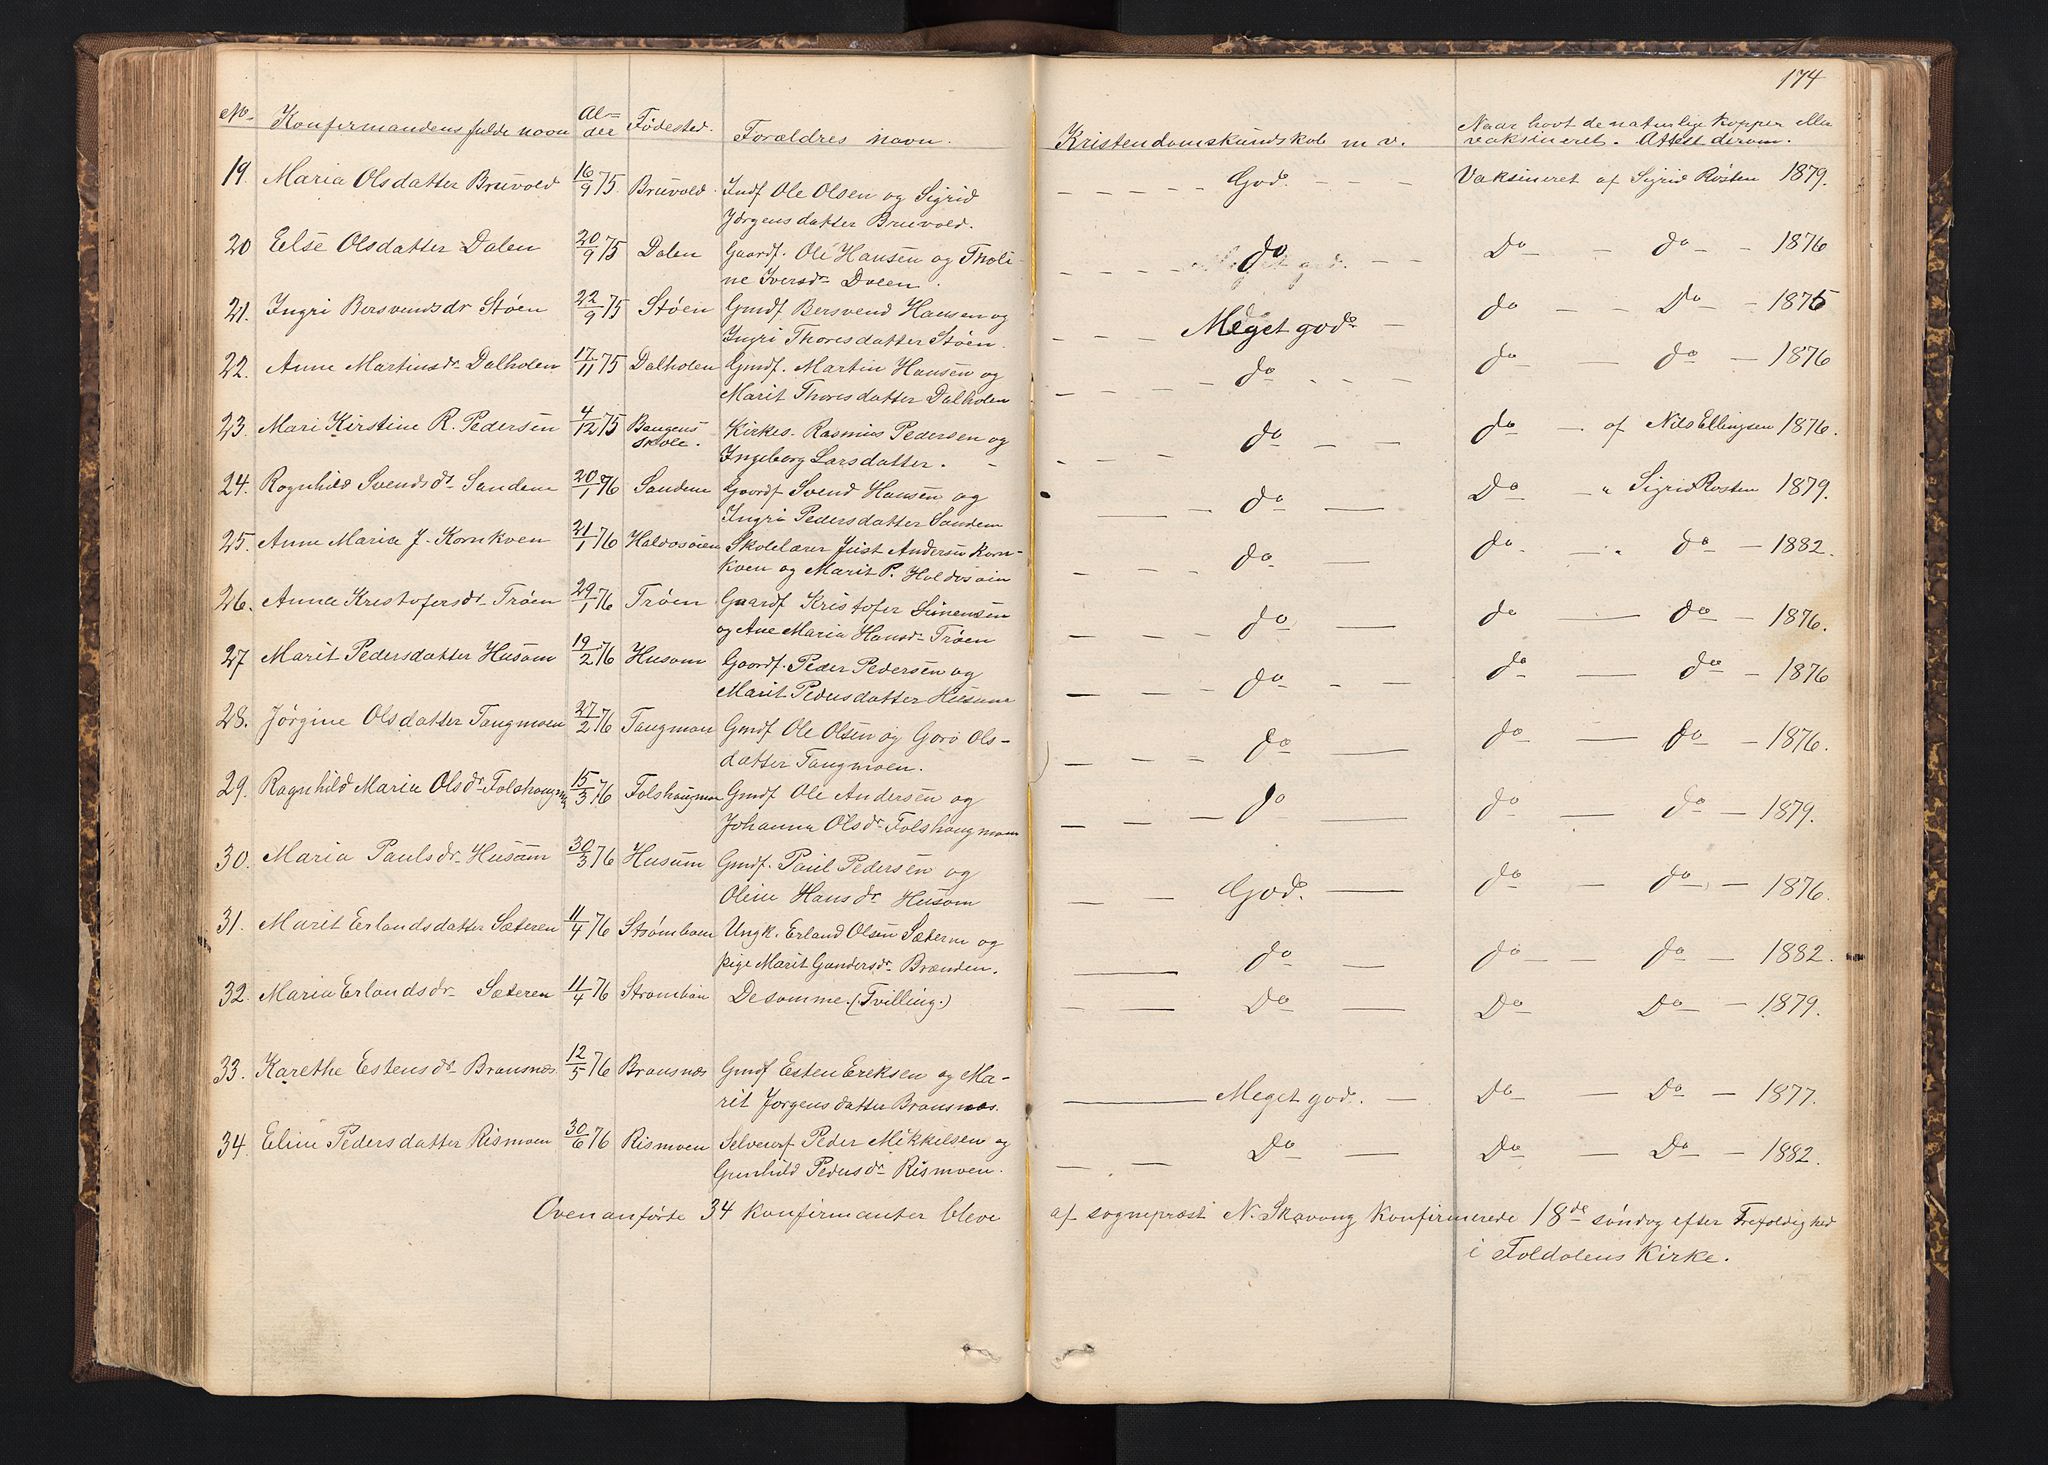 174
No. Konfirmandens fulde navn Al= Fødested. Forældres navn. Kristendomskundskab m. v. Naar havt de naturlige kopper eller
der vaksineret. Attest derom.
19. Maria Olsdatter Bruvold 16/9 75. Bruvold. Indf Ole Olsen og Sigrid — — — — God. — — — Vaksineret af Sigrid Røsten 1879.
Jørgensdatter Bruvold.
20 Else Olsdatter Dalen 20/9 75 Dalen Gaardf. Ole Hansen og Tholi- — — — — do — — Do — do — - 1876
ne Iversdr Dalen.
21. Ingri Bersvendsdr Støen 22/9 75 Støen Gmdf Bersvend Hansen og — — — Meget god. — do — - Do — - 1875
Ingri Thoresdatter Støen.
22. Anne Martinsdr Dalholen 17/11 75 Dalholen Gmdf. Martin Hansen og — — — — do — — — do — do — 1876
Marit Thoresdatter Dalholen
23. Mari Kirstine R. Pedersen 4/12 75 Baugens Kirkes. Rasmus Pedersen og — — — — do — — do — af Nils Ellingsen 1876.
skole. Ingeborg Larsdatter. -
24. Ragnhild Svendsdr Sandem 20/1 76 Sandem Gaardf Svend Hansen og — — do — Do — " Sigrid Røsten 1879.
Ingri Pedersdatter Sandem
25. Anne Maria J. Kornkven 21/1 76 Haldosøien Skolelærer Just Andersen Korn- — — — — do — do — " do — 1882.
kven og Marit P. Haldosøien
26. Anna Kristofersdr Trøen 29/1 76 Trøen Gaardf Kristofer Simensen — — — — do — do — do — 1876.
og Ane Maria Hansdr Trøen
27 Marit Pedersdatter Husom 19/2 76 Husom Gaardf. Peder Pedersen og — — — — do — — — do — do — 1876
Marit Pedersdatter Husum
28. Jørgine Olsdatter Tangmoen 27/2 76 Tangmoen Gmdf Ole Olsen og Goro Ols- — — — — do — do — do — 1876.
datter Tangmoen.
29. Ragnhild Maria Olsdr Folshaugmo 15/3 76 Folshaugmoen Gmdf Ole Andersen og — — — do — do — do — 1879.
Johanna Olsdr Folshaugmoen
30. Maria Paulsdr Husum 30/3 76 Husum Gmdf. Paul Pedersen og — — God. — do — do — 1876.
Oline Hansdr Husom
31. Marit Erlandsdatter Sæteren 11/4 76 Strømboen Ungk. Erland Olsen Sæteren og — do — do — — do — 1882.
pige Marit Gundersdr Brænden.
32. Maria Erlandsdr Sæteren 11/4 76 Strømboen De samme. (Tvilling.) — — Do — Do — Do — 1879.
33. Karethe Estensdr Bransnæs. 12/5 76 Bransnæs Gmdf Esten Eriksen og Ma- — Meget god. — Do — Do — 1877.
rit Jørgensdatter Bransnæs.
34. Eline Pedersdatter Rismoen 30/6 76 Rismoen Selveierf Peder Mikkelsen og — — Do — Do — Do — 1882.
Gunhild Pedersdr Rismoen.
Ovenanførte 34 konfirmanter bleve af sognepræst N. Skavang konfirmerede 18de søndag efter Trefoldighed
i Foldalens Kirke.